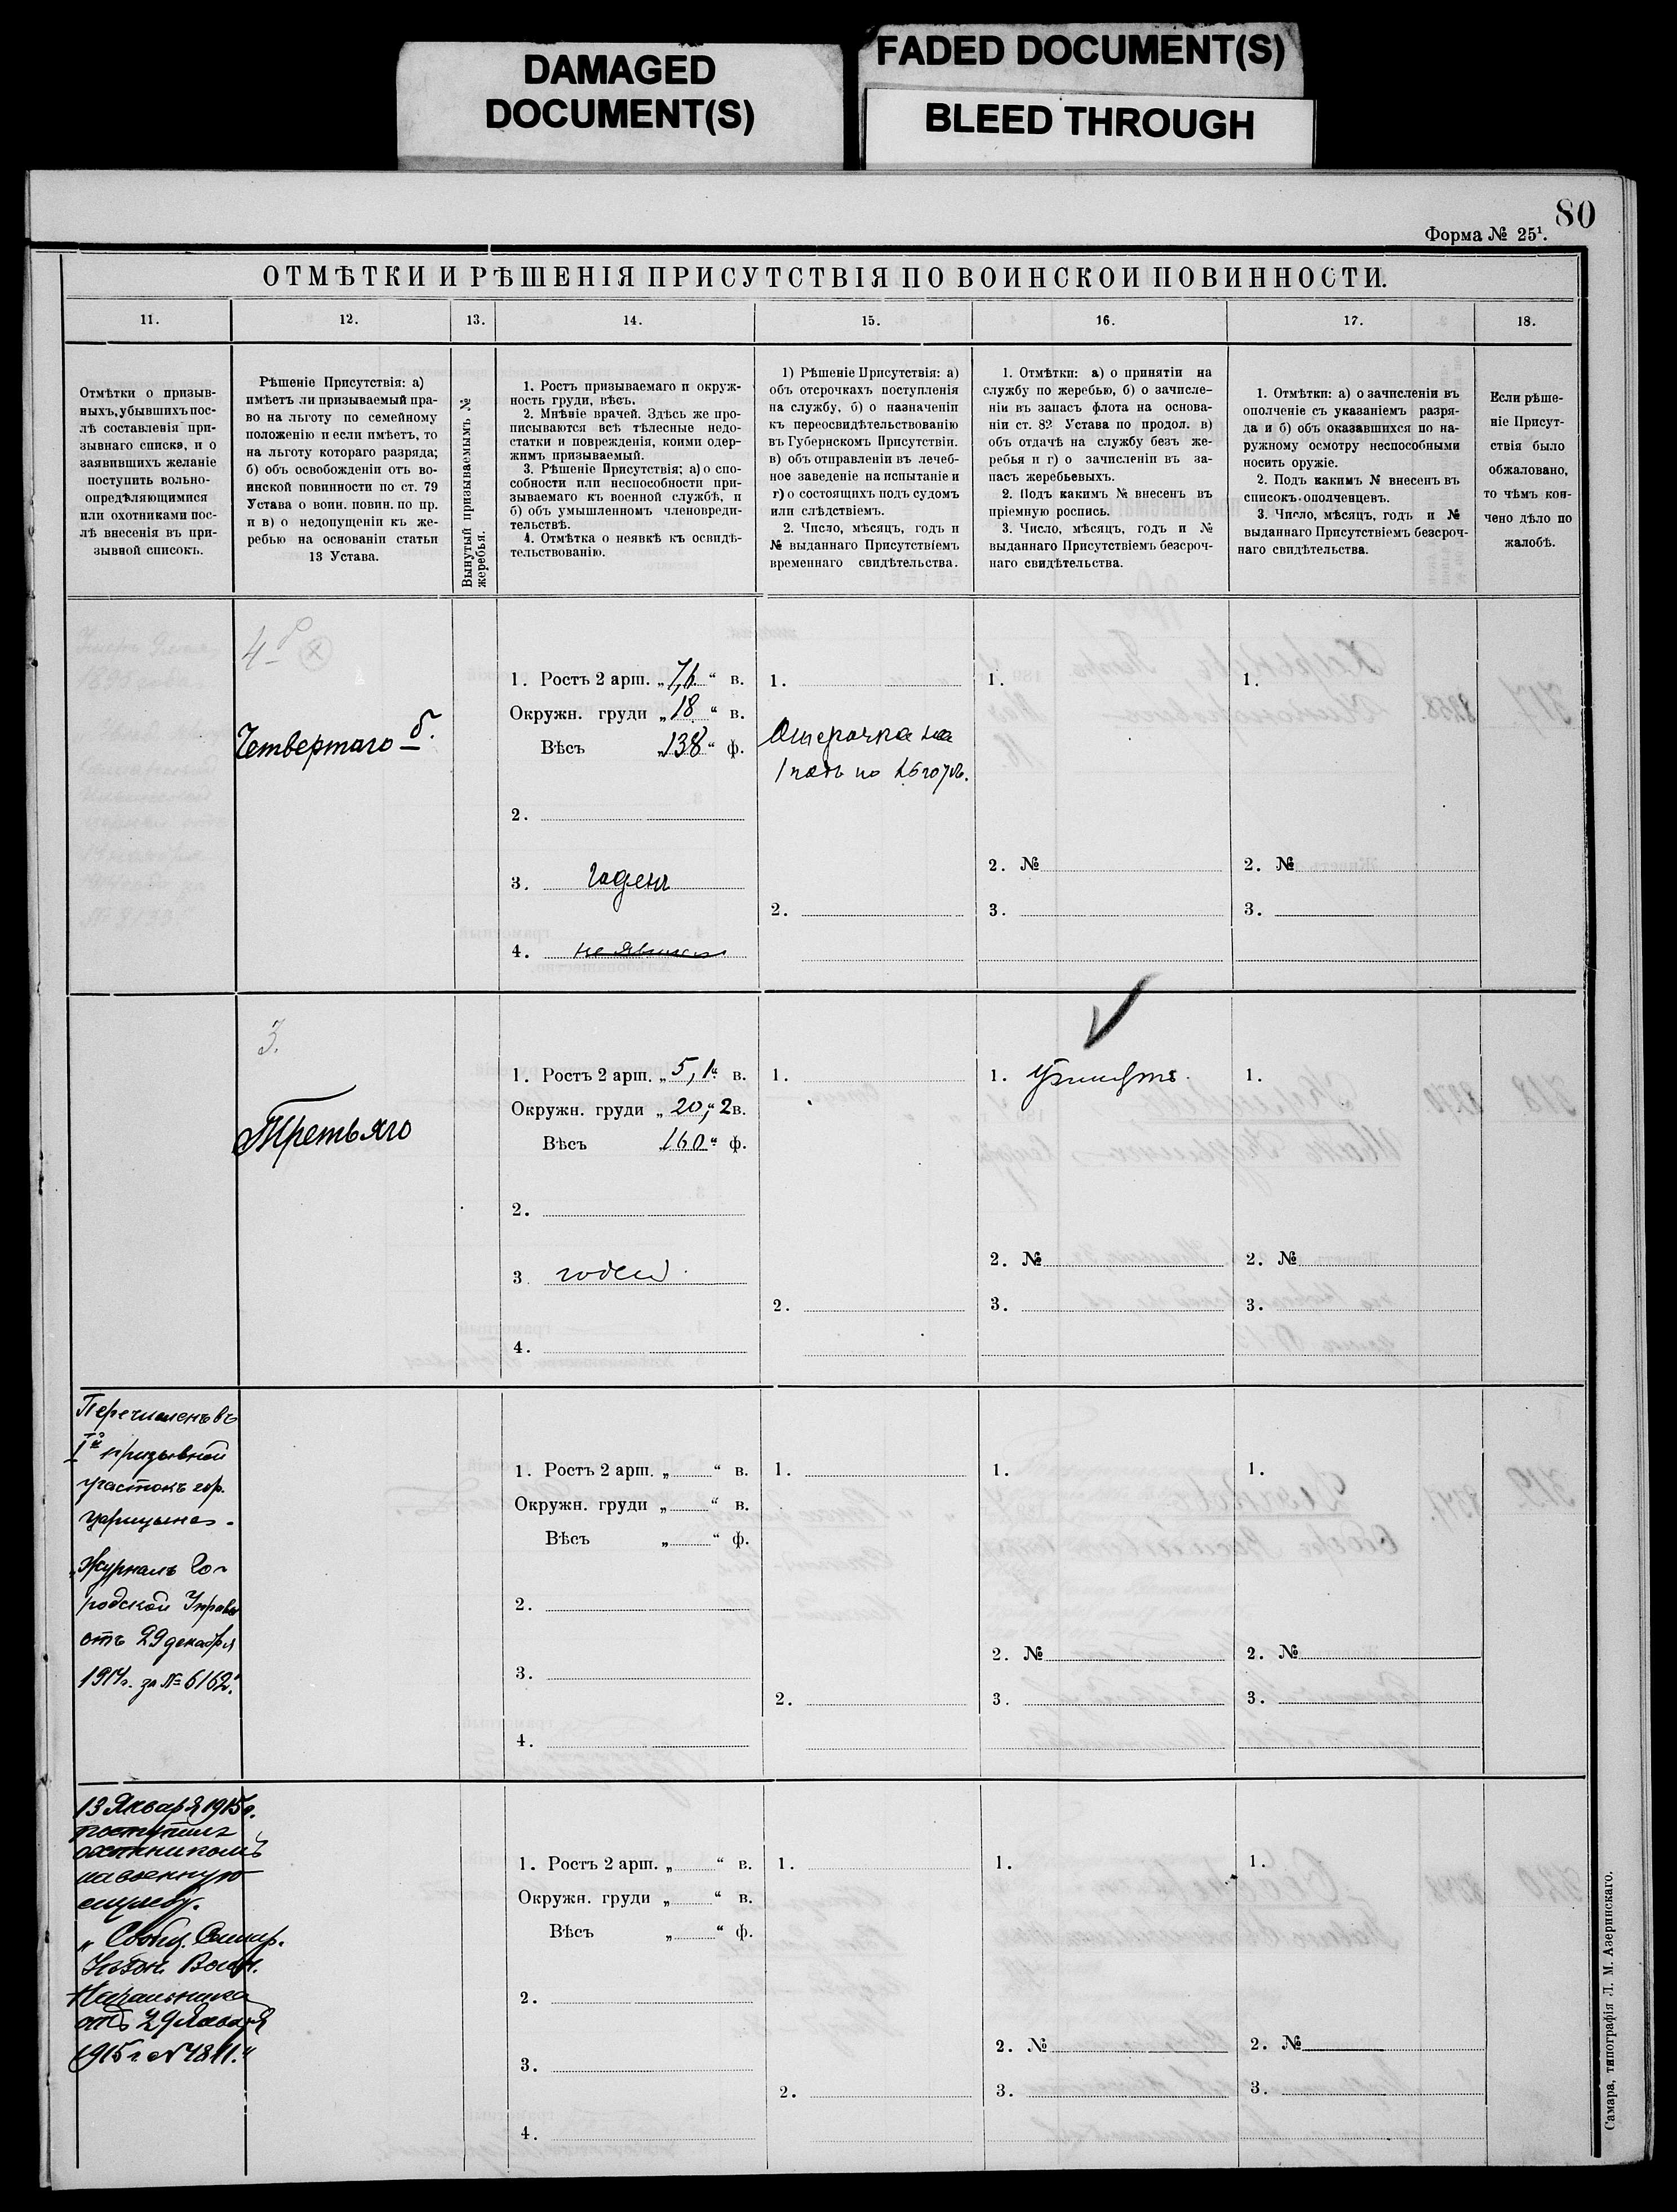 DAMAGED
DOCUMENT(S)
FADED DOCUMENT(S)
BLEED THROUGH
80
Форма № 25¹.
ОТМѢТКИ И РѢШЕНІЯ ПРИСУТСТВІЯ ПО ВОИНСКОЙ ПОВИННОСТИ.
11.
12.
13.
14.
15.
16.
17.
18.
Отмѣтки о призыв-
ныхъ, убывшихъ пос-
лѣ составленія при-
зывнаго списка, и о
заявившихъ желаніе
поступить вольно-
опредѣляющимися
или охотниками пос-
лѣ внесенія въ при-
зывной списокъ.
Рѣшеніе Присутствія: а)
имѣетъ ли призываемый пра-
во на льготу по семейному
положенію и если имѣетъ, то
на льготу котораго разряда;
б) объ освобожденіи отъ во-
инской повинности по ст. 79
Устава о воин. повин. по пр.
и в) о недопущеніи къ же-
ребью на основаніи статьи
13 Устава.
Вынутый призываемымъ №
жеребья.
1. Ростъ призываемаго и окруж-
ность груди, вѣсъ.
2. Мнѣніе врачей. Здѣсь же про-
писываются всѣ тѣлесные недо-
статки и поврежденія, коими одер-
жимъ призываемый.
3. Рѣшеніе Присутствія; а) о спо-
собности или неспособности при-
зываемаго къ военной службѣ, и
б) объ умышленномъ членовреди-
тельствѣ.
4. Отмѣтка о неявкѣ къ освидѣ-
тельствованію.
1) Рѣшеніе Присутствія: а)
объ отсрочкахъ поступленія
на службу, б) о назначеніи
къ переосвидѣтельствованію
въ Губернскомъ Присутствіи.
в) объ отправленіи въ лечеб-
ное заведеніе на испытаніе и
г) о состоящихъ подъ судомъ
или слѣдствіемъ.
2. Число, мѣсяцъ, годъ и
№ выданнаго Присутствіемъ
временнаго свидѣтельства.
1. Отмѣтки: а) о принятіи на
службу по жеребью, б) о зачисле-
ніи въ запасъ флота на основа-
ніи ст. 82 Устава по продол. в)
объ отдачѣ на службу безъ же-
ребья и г) о зачисленіи въ за-
пасъ жеребьевыхъ.
2. Подъ какимъ № внесенъ въ
пріемную роспись.
3. Число, мѣсяцъ, годъ и №
выданнаго Присутствіемъ безсроч-
наго свидѣтельства.
1. Отмѣтки: а) о зачисленіи въ
ополченіе съ указаніемъ разря-
да и б) объ оказавшихся по на-
ружному осмотру неспособными
носить оружіе.
2. Подъ какимъ № внесенъ въ
списокъ ополченцевъ.
3. Число, мѣсяцъ, годъ и №
выданнаго Присутствіемъ безсроч-
наго свидѣтельства.
Если рѣше-
ніе Присут-
ствія было
обжаловано,
то чѣмъ кон-
чено дѣло по
жалобѣ.
4 б
Четвертаго б.
1. Ростъ 2 арш. „ 7,6 “ в.
Окружн. груди „ 18 “ в.
Вѣсъ „ 138 “ ф.
2.
3. годенъ
4. не явился
1.
Отсрочка на
1 годъ по
2.
1.
2. №
3.
1.
2. №
3.
3.
Третьяго
1. Ростъ 2 арш. „ 5, 1 “ в.
Окружн. груди „ 20, “ 2 в.
Вѣсъ „ 160 “ ф.
2.
3. годенъ
4.
1.
2.
1.
2. №
3.
1.
2. №
3.
Перечисленъ въ
I й призывной
участокъ гор.
Царицына.
„Журналъ Го-
родской Управы
отъ 29 декабря
1914 г. за № 6162“.
1. Ростъ 2 арш. „ “ в.
Окружн. груди „ “ в.
Вѣсъ „ “ ф.
2.
3.
4.
1.
2.
1.
2. №
3.
1.
2. №
3.
13 Января 1915 г.
поступилъ
охотникомъ
на военную
службу.
„ Сообщ. Самар.
Уѣздн. Воин.
Начальника
отъ 29 Января
1915 г. № 4811.“
1. Ростъ 2 арш. „ “ в.
Окружн. груди „ “ в.
Вѣсъ „ “ ф.
2.
3.
4.
1.
2.
1.
2. №
3.
1.
2. №
3.
Самара, типографія Л. М. Азеринскаго.